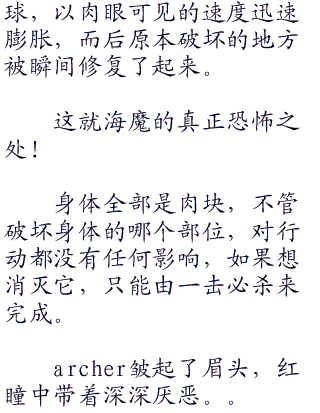 球，以肉眼可见的速度迅速
膨胀，而后原本破坏的地方
被瞬间修复了起来。
这就海魔的真正恐怖之
处！
身体全部是肉块，不管
破坏身体的哪个部位，对行
动都没有任何影响，如果想
消灭它，只能由一击必杀来
完成。
archer皱起了眉头，红
瞳中带着深深厌恶。。